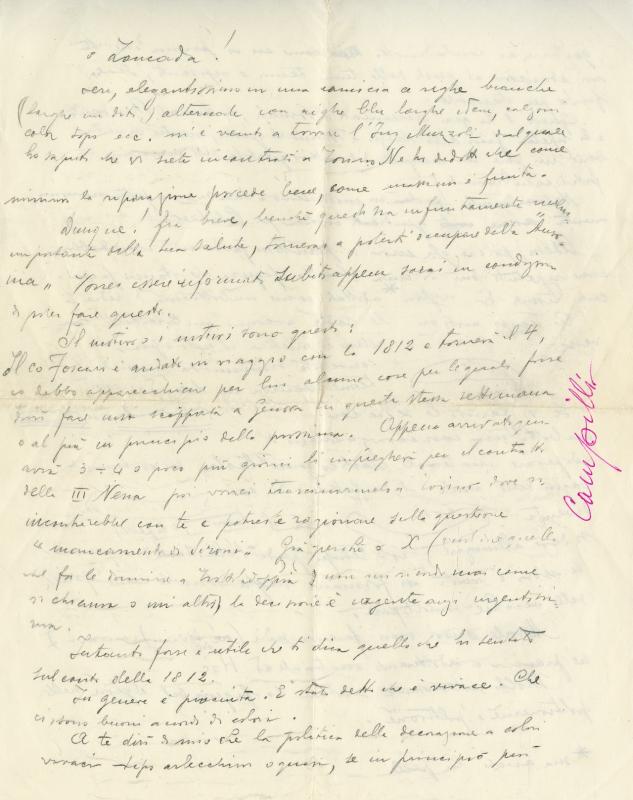 o Zoncada!
Ieri, elegantissimo in una camicia a righe bianche
(larghe un dito) alternate con righe blu larghe idem, calzoni
color topo ecc. m'è venuto a trovare l'Ing Muzzoli dal quale
ho saputo che vi siete incontrati a Torino. Ne ho dedotto che come
minimo la riparazione procede bene, come massimo è finita.
Dunque! fra breve, benché questo sia infinitamente meno
importante della tua salute, tornerai a poterti occupare della "
ma" Vorrei essere informato subito appena sarai in condizioni
di poter fare questo.
Il motivo o i motivi sono questi:
Il co Foscari è andato in viaggio con la 1812 e tornerà il 4,
io debbo apparecchiare per lui alcune cose per le quali forse
dovrò fare una scappata a Genova in questa stessa settimana
o al più in principio della prossima. Appena arrivato
avrà 3÷4 o poco più giorni li impiegherà per il contratto
della III Nena poi vorrei trascinarmelo a Torino dove si
incontrerebbe con te e potreste ragionare sulla questione
"mancamento di Sironi". Già perché o X (
che fa le domine a e non mi ricordo mai come
si chiama o un altro) la decisione è urgente anzi urgentissi-
ma.
Intanto forse è utile che ti dica quello che ho sentito
sul conto della 1812.
In genere è piaciuta. È stato detto che è vivace. Che
ci sono buoni accordi di colori.
A te dirò di mio che la politica della decorazione a colori
vivaci tipo arlecchino o quasi, se in principio può
Campilli